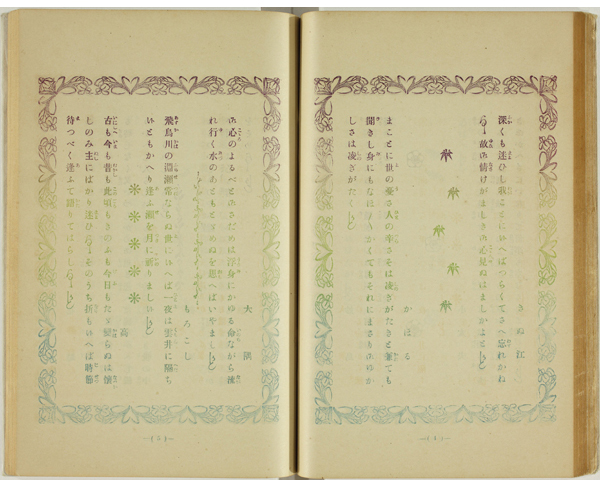 きぬ江
深くも迷ひし戀ことにいへばつらくてさへ忘れかね
故の情けがましきの心見ぬはましかよと
かほる
まことに世の憂さ人の辛さそは凌ぎがたきと兼ても
聞きし身にもなほうかくてもそれにまさりのゆか
しさは凌ぎがたく
—(1)—
大濱
の心のよるべとのさだめは浮身にかゆる命ながら流
れ行く水のあともとゞめぬを思へばいやまし
もろこし
飛鳥川の淵瀬常ならぬ世にいへば一夜は雲井に隔ち
いともかへり逢ふ瀬を月に祈りましい
高
古も今も昔も此頃もきのふも今日もたゞ變らぬは懐
しのみ主にばかり迷ひそのうち折もいへば時節
待つべく逢ふて語りてはらし
—(2)—